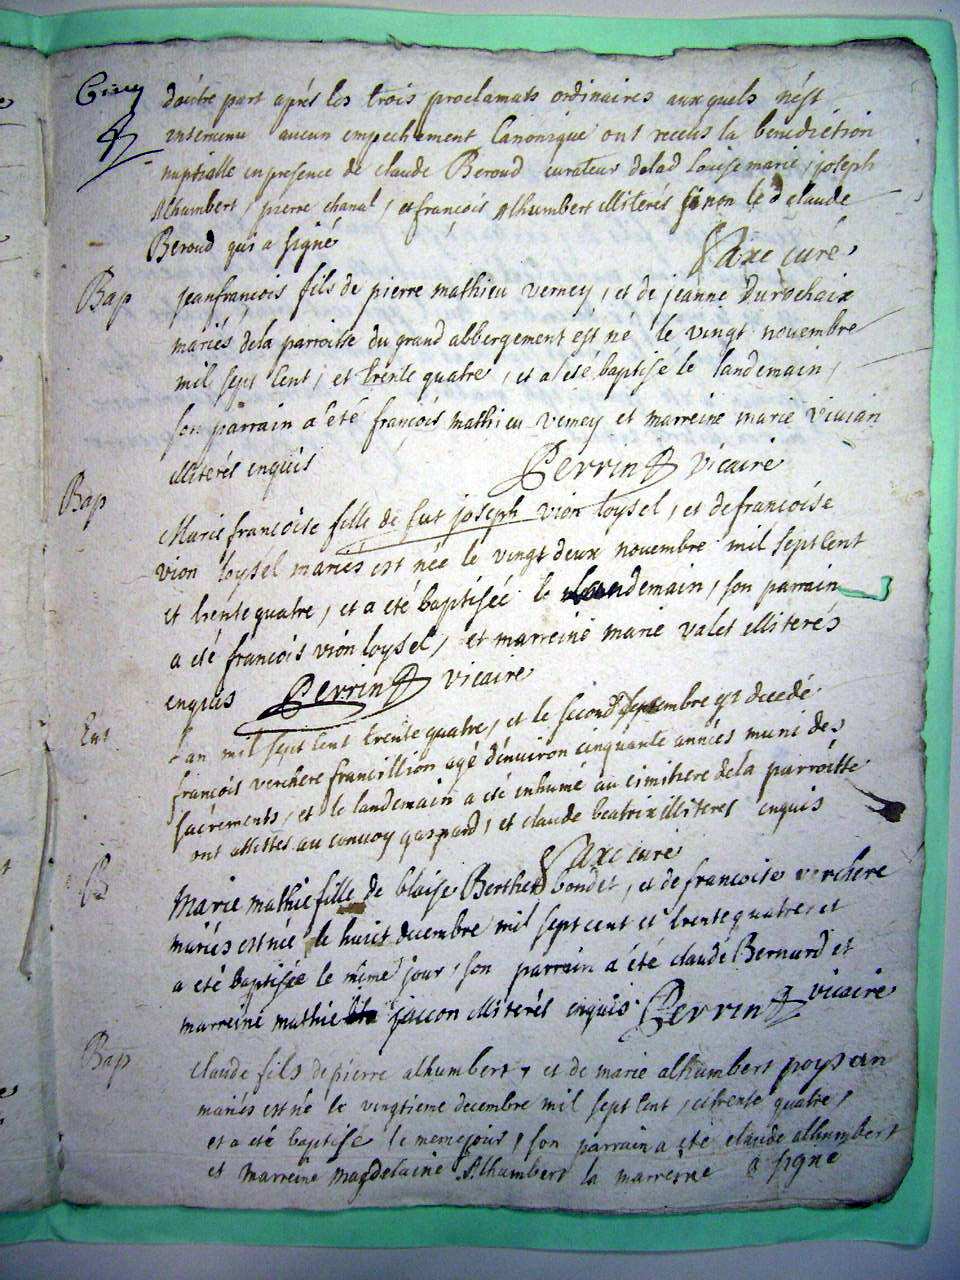 Cinq
d'autre part aprés les trois proclamats ordinaires auxquels n'est
intervenu aucun empechement Canonique ont receus la benediction
nuptialle en presence de claude Beroud curateur delad Louise marie, joseph
Alhumbert, pierre chanal, et françois Alhumbert illiterés sinon led claude
Beroud qui a signé
Saxe curé
Bap
jeanfrancois fils de pierre mathieu verney, et de jeanne Durochaix
mariés dela parroisse du grand abbergement est né le vingt novembre
mil sept Cent, et trente quatre, et a été baptisé le landemain,
son parrain a été françois mathieu verney et marreine marie vivian
illiterés enquis
Perrin vicaire
Bap
Marie francoise fille de fut joseph vion loysel, et de francoise
vion loysel mariés est née le vingt deux novembre mil sept Cent
et trente quatre, et a été baptisée le landemain, son parrain
a été francois vion loysel, et marreine marie valet illiterés
enquis Perrin vicaire
Ent
L'an mil sept Cent trente quatre, et le second septembre est decedé
françois verchere francillion agé d'environ cinquante années muni des
sacrements, et le landemain a été inhumé au cimitiere dela parroisse
ont assistes au convoy gaspard, et claude beatrix illiteres enquis
Saxe curé
B
Marie mathie fille de blaise Berthet bondet, et de francoise verchere
mariés est née le huict decembre mil sept cent et trente quatre, et
a été baptisée le même jour, son parrain a été claude Bernard et
marreine mathie jaccon illiterés enquis Perrin vicaire
Bap
claude fils de pierre alhumbert, et de marie alhumbert poysan
mariés est né le vingtieme decembre mil sept Cent, et trente quatre,
et a été baptisé le meme jour, son parrain a été claude alhumbert
et marreine magdelaine Alhumbert la marreine a signé